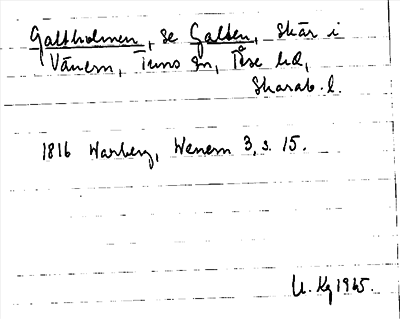 Galtholmen, se Galten, skär i
Vänern, Tuns sn, Åse hd,
Skarab. l.
1816 Warberg, Wenern 3, s. 15.
U. Kg 1925.